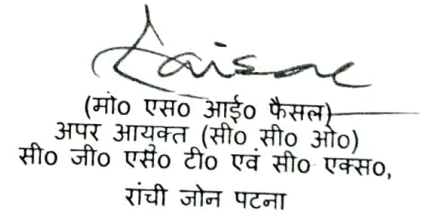 Faisal
(मो० एस० आई० फैसल)
अपर आयुक्त (सी० सी० ओ०)
सी० जी० एस० टी० एवं सी० एक्स०,
रांची जोन पटना